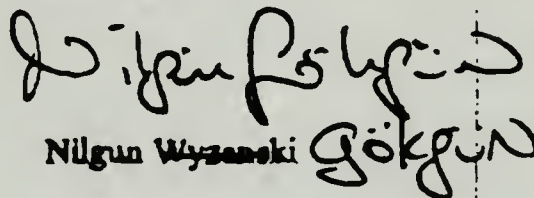 Nilgün Gökgün
Nilgun Wyzanski GÖKGÜN